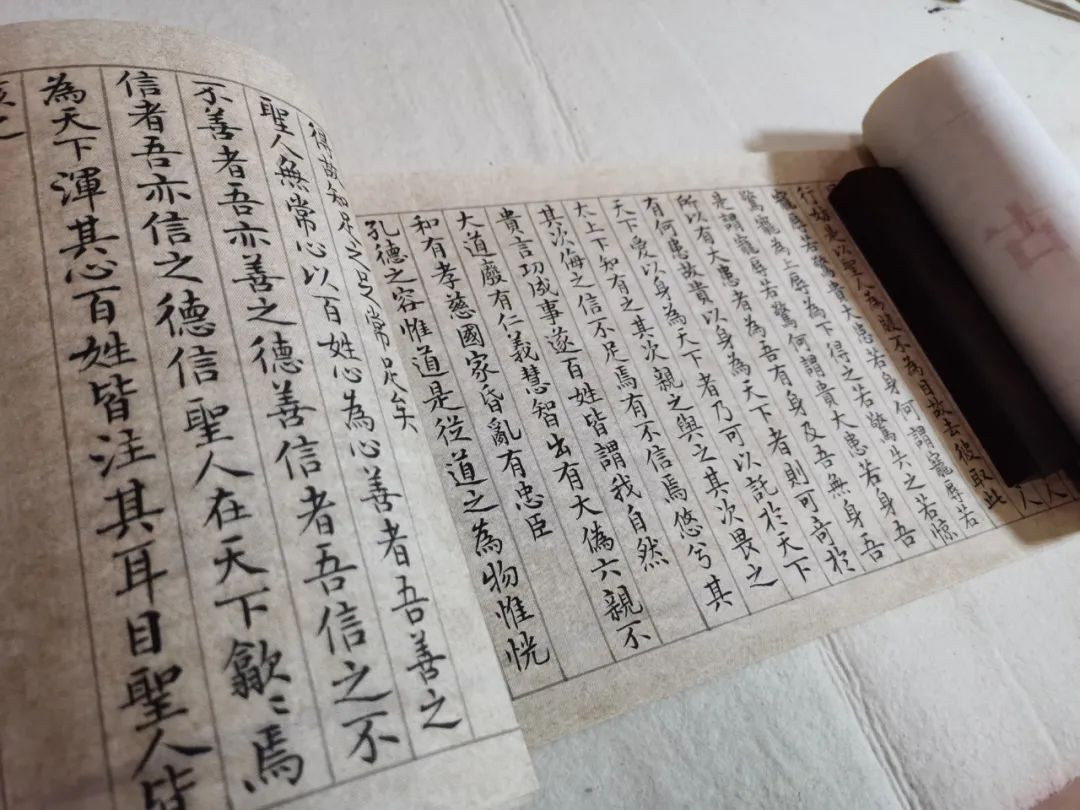 行妨是以聖人為腹不為目故去彼取此
寵辱若驚貴大患若身何謂寵辱若
驚寵為上辱為下得之若驚失之若惊
是謂寵辱若驚何謂貴大患若身吾
所以有大患者為吾有身及吾無身吾
有何患故貴以身為天下者則可寄於
天下愛以身為天下者乃可以託於天下
太上下知有之其次親之與之其次畏之
其次侮之信不足焉有不信焉悠兮其
貴言功成事遂百姓皆謂我自然
大道廢有仁義慧智出有大偽六親不
和有孝慈國家昏亂有忠臣
孔德之容惟道是從道之為物惟恍
得故知足之足常足矣
聖人無常心以百姓心為心善者吾善之
不善者吾亦善之德善信者吾信之不
信者吾亦信之德信聖人在天下歙〻焉
為天下渾其心百姓皆注其耳目聖人皆
孩之